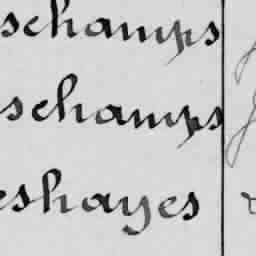 schamps
schamps
eshayes